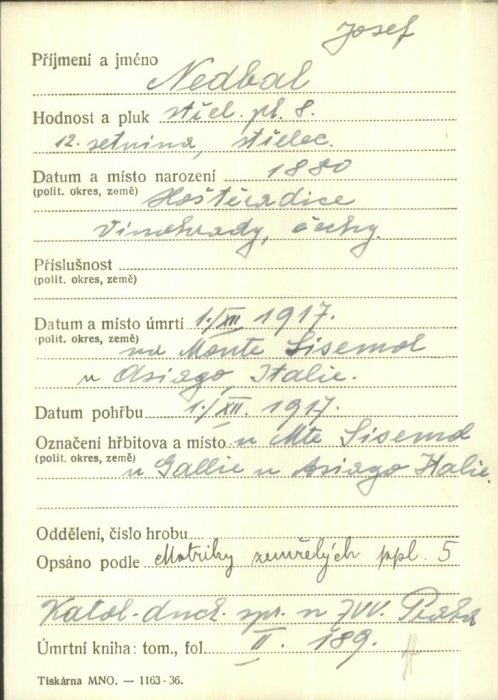 Josef
Příjmení a jméno Nedbal
Hodnost a pluk střel. pl. 8.
12. setnina, střelec.
Datum a místo narození 1880
(polit. okres, země) Hoštěradice
Vinohrady, Čechy.
Příslušnost
(polit. okres, země)
Datum a místo úmrtí 1./XII. 1917.
(polit. okres, země) na Monte Sisemol
u Asiago, Italie.
Datum pohřbu 1./XII. 1917.
Označení hřbitova a místo u Mte Sisemol
(polit. okres, země) u Gallie u Asiago Italie.
Oddělení, číslo hrobu
Opsáno podle Matriky zemřelých ppl. 5
Katol. duch. spr. u ZVV. Praha
Úmrtní kniha: tom., fol. II. 189.
Tiskárna MNO. — 1163-36.